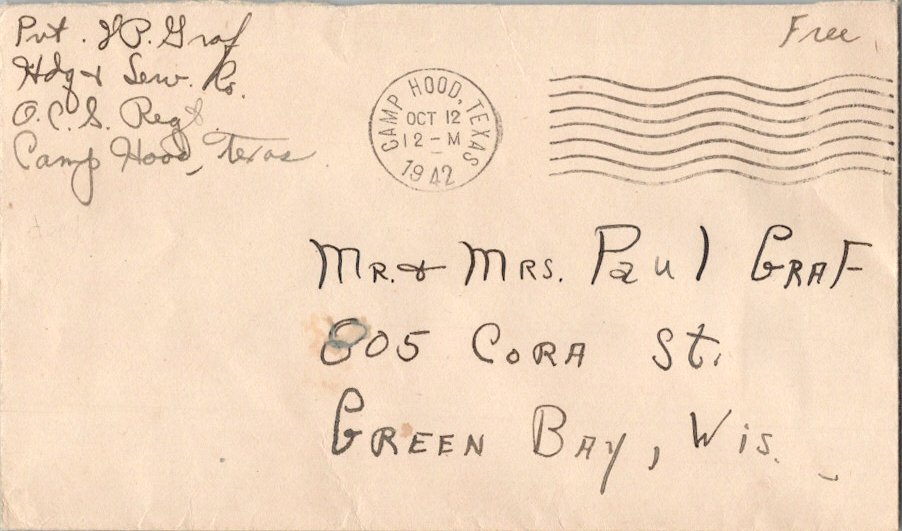 Pvt. J P. Graf
Hdq & Serv. Co.
O.C.S. Regt.
Camp Hood, Texas
Free
CAMP HOOD, TEXAS
OCT 12
12-M
1942
MR. & MRS. Paul GRAF
805 CORA St.
GREEN BAY, Wis.